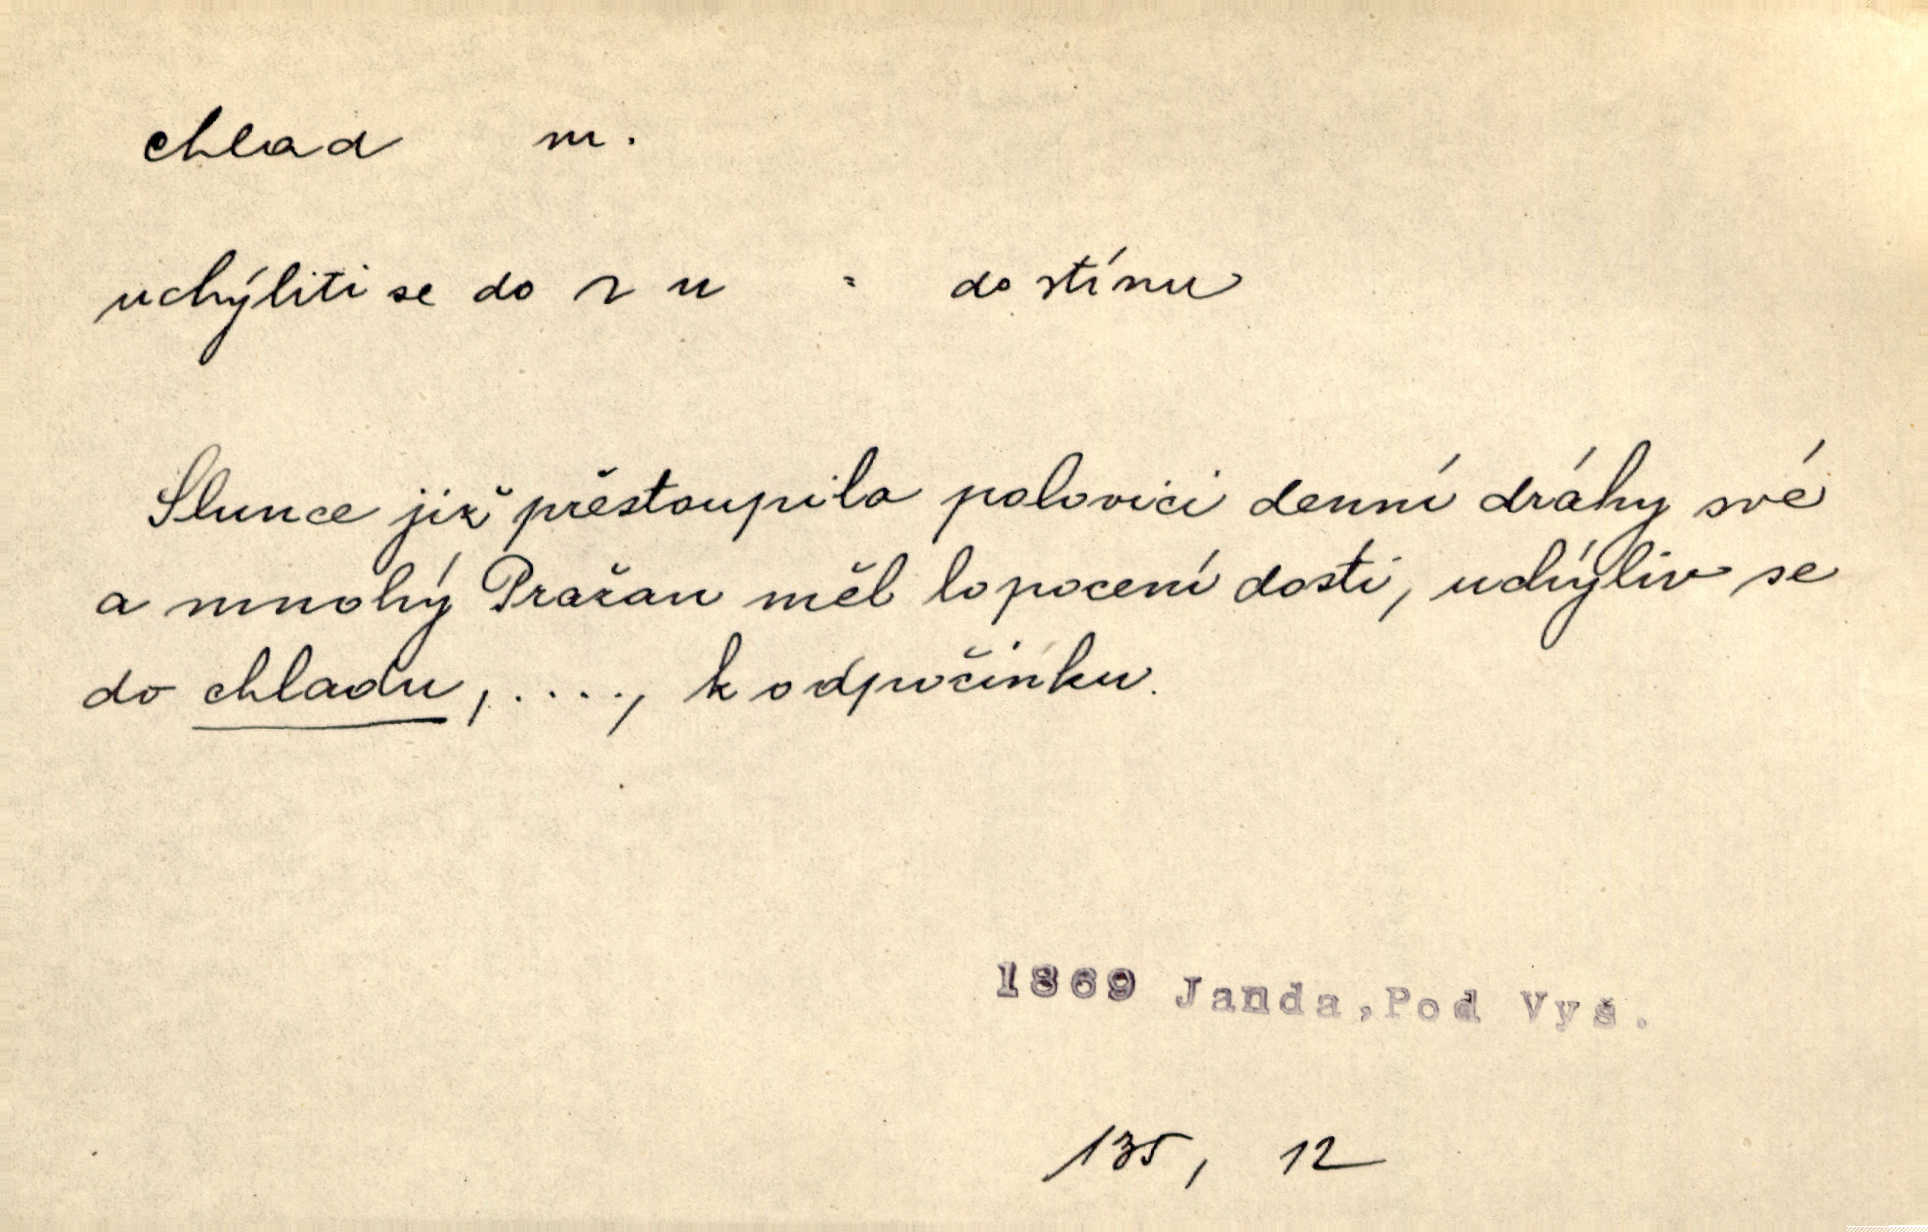 chlad m.
uchýliti se do ~ u = do stínu
Slunce již přestoupilo polovici denní dráhy své
a mnohý Pražan měl lopocení dosti, uchýliv se
do chladu, ...., k odpočinku.
1869 Janda, Pod Vyš.
135, 12